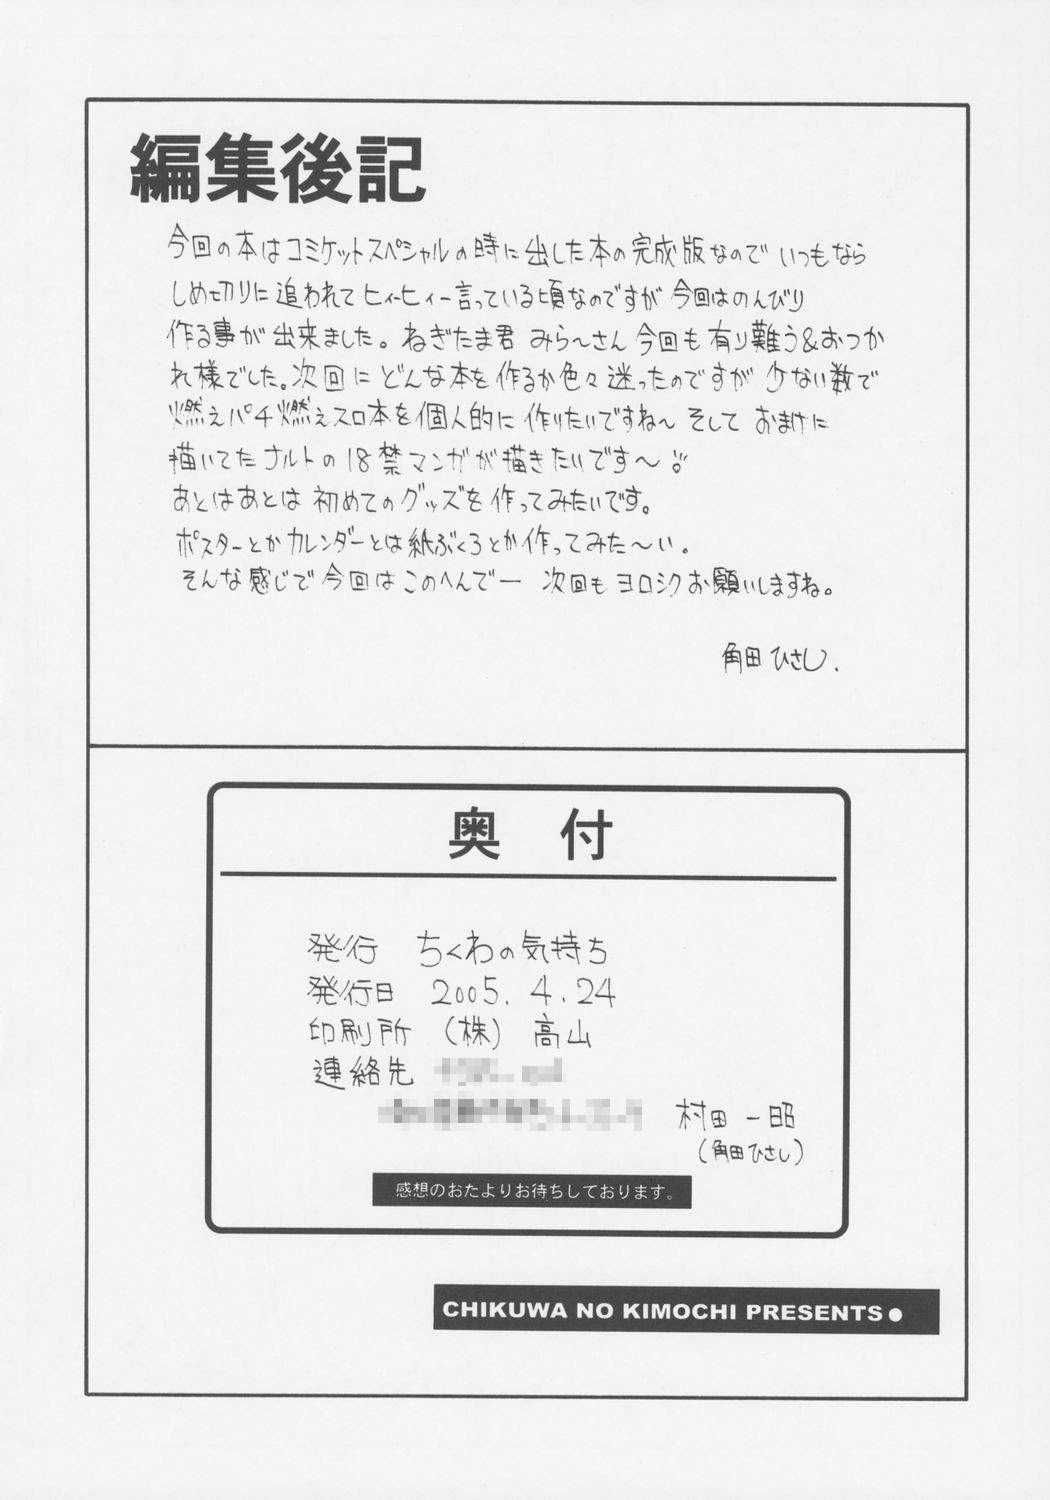 編集後記
今回の本はコミケットスペシャルの時に出した本の完成版なので いつもなら
しめ切りに追われてヒィーヒィー言っている頃なのですが 今回はのんびり
作る事が出来ました。ねぎたま君 みら〜さん 今回も有り難う&おつか
れ様でした。次回に どんな本を作るか色々迷ったのですが 少ない数で
燃えパチ燃えスロ本を個人的に作りたいですね〜 そして おまけに
描いてたナルトの18禁マンガが描きたいです〜
あとはあとは 初めてのグッズを作ってみたいです。
ポスターとかカレンダーとは紙ぶくろとか作ってみた〜い。
そんな感じで今回はこのへんでー 次回もヨロシクお願いしますね。
角田ひさし.
奥付
発行 ちくわの気持ち
発行日 2005.4.24
印刷所 (株) 高山
連絡先
村田 一昭
(角田ひさし)
感想のおたよりお待ちしております。
CHIKUWA NO KIMOCHI PRESENTS●